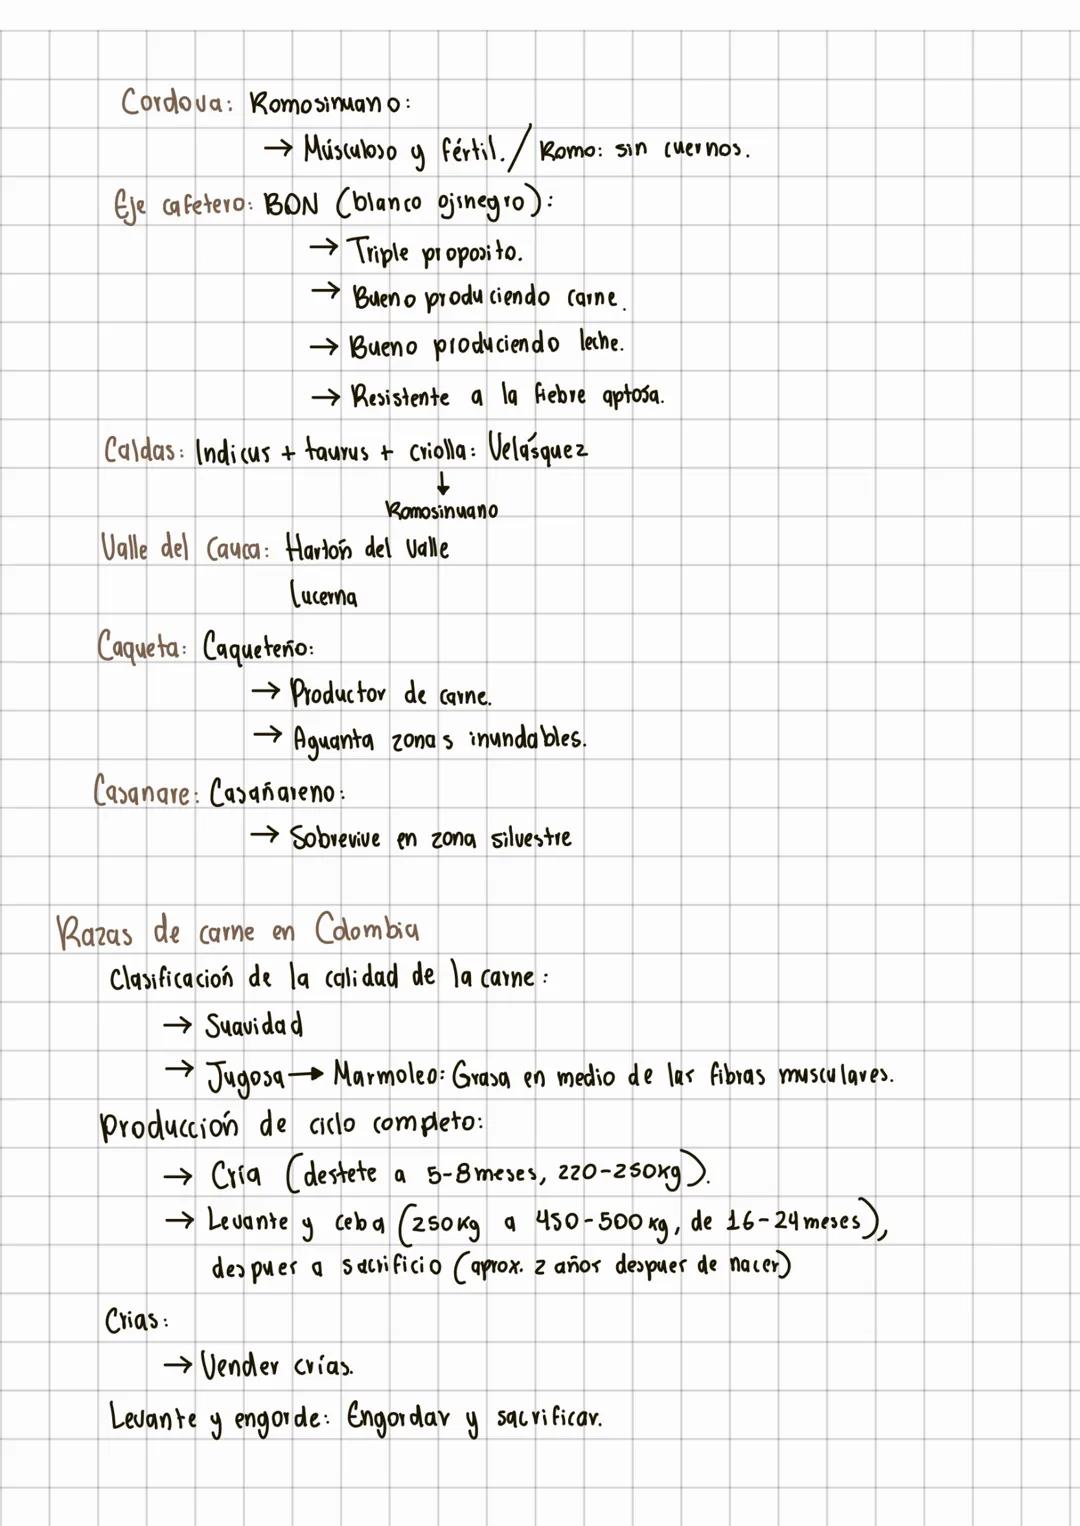 Cordova: Romosinuano:
→ Músculoso y fértil. / Romo: sin cuernos.
Eje cafetero: BON (blanco ojinegro):
→ Triple proposito.
→ Bueno produciendo carne.
→ Bueno produciendo leche.
→ Resistente a la fiebre aptosa.
Caldas: Indicus + taurus + criolla: Velásquez
↓
Romosinuano
Valle del Cauca: Hartón del Valle
Lucerna
Caqueta: Caqueteño:
→ Productor de carne.
→ Aguanta zonas inundables.
Casanare: Casañareno:
→ Sobrevive en zona silvestre
Razas de carne en Colombia
Clasificación de la calidad de la carne:
→ Suavidad
→ Jugosa → Marmoleo: Grasa en medio de las fibras musculares.
Producción de ciclo completo:
→ Cría (destete a 5-8 meses, 220-250kg).
→ Levante y ceba (250kg a 450-500kg, de 16-24 meses),
despues a sacrificio (aprox. 2 años despues de nacer)
Crias:
→ Vender crías.
Levante y engorde: Engordar y sacrificar.